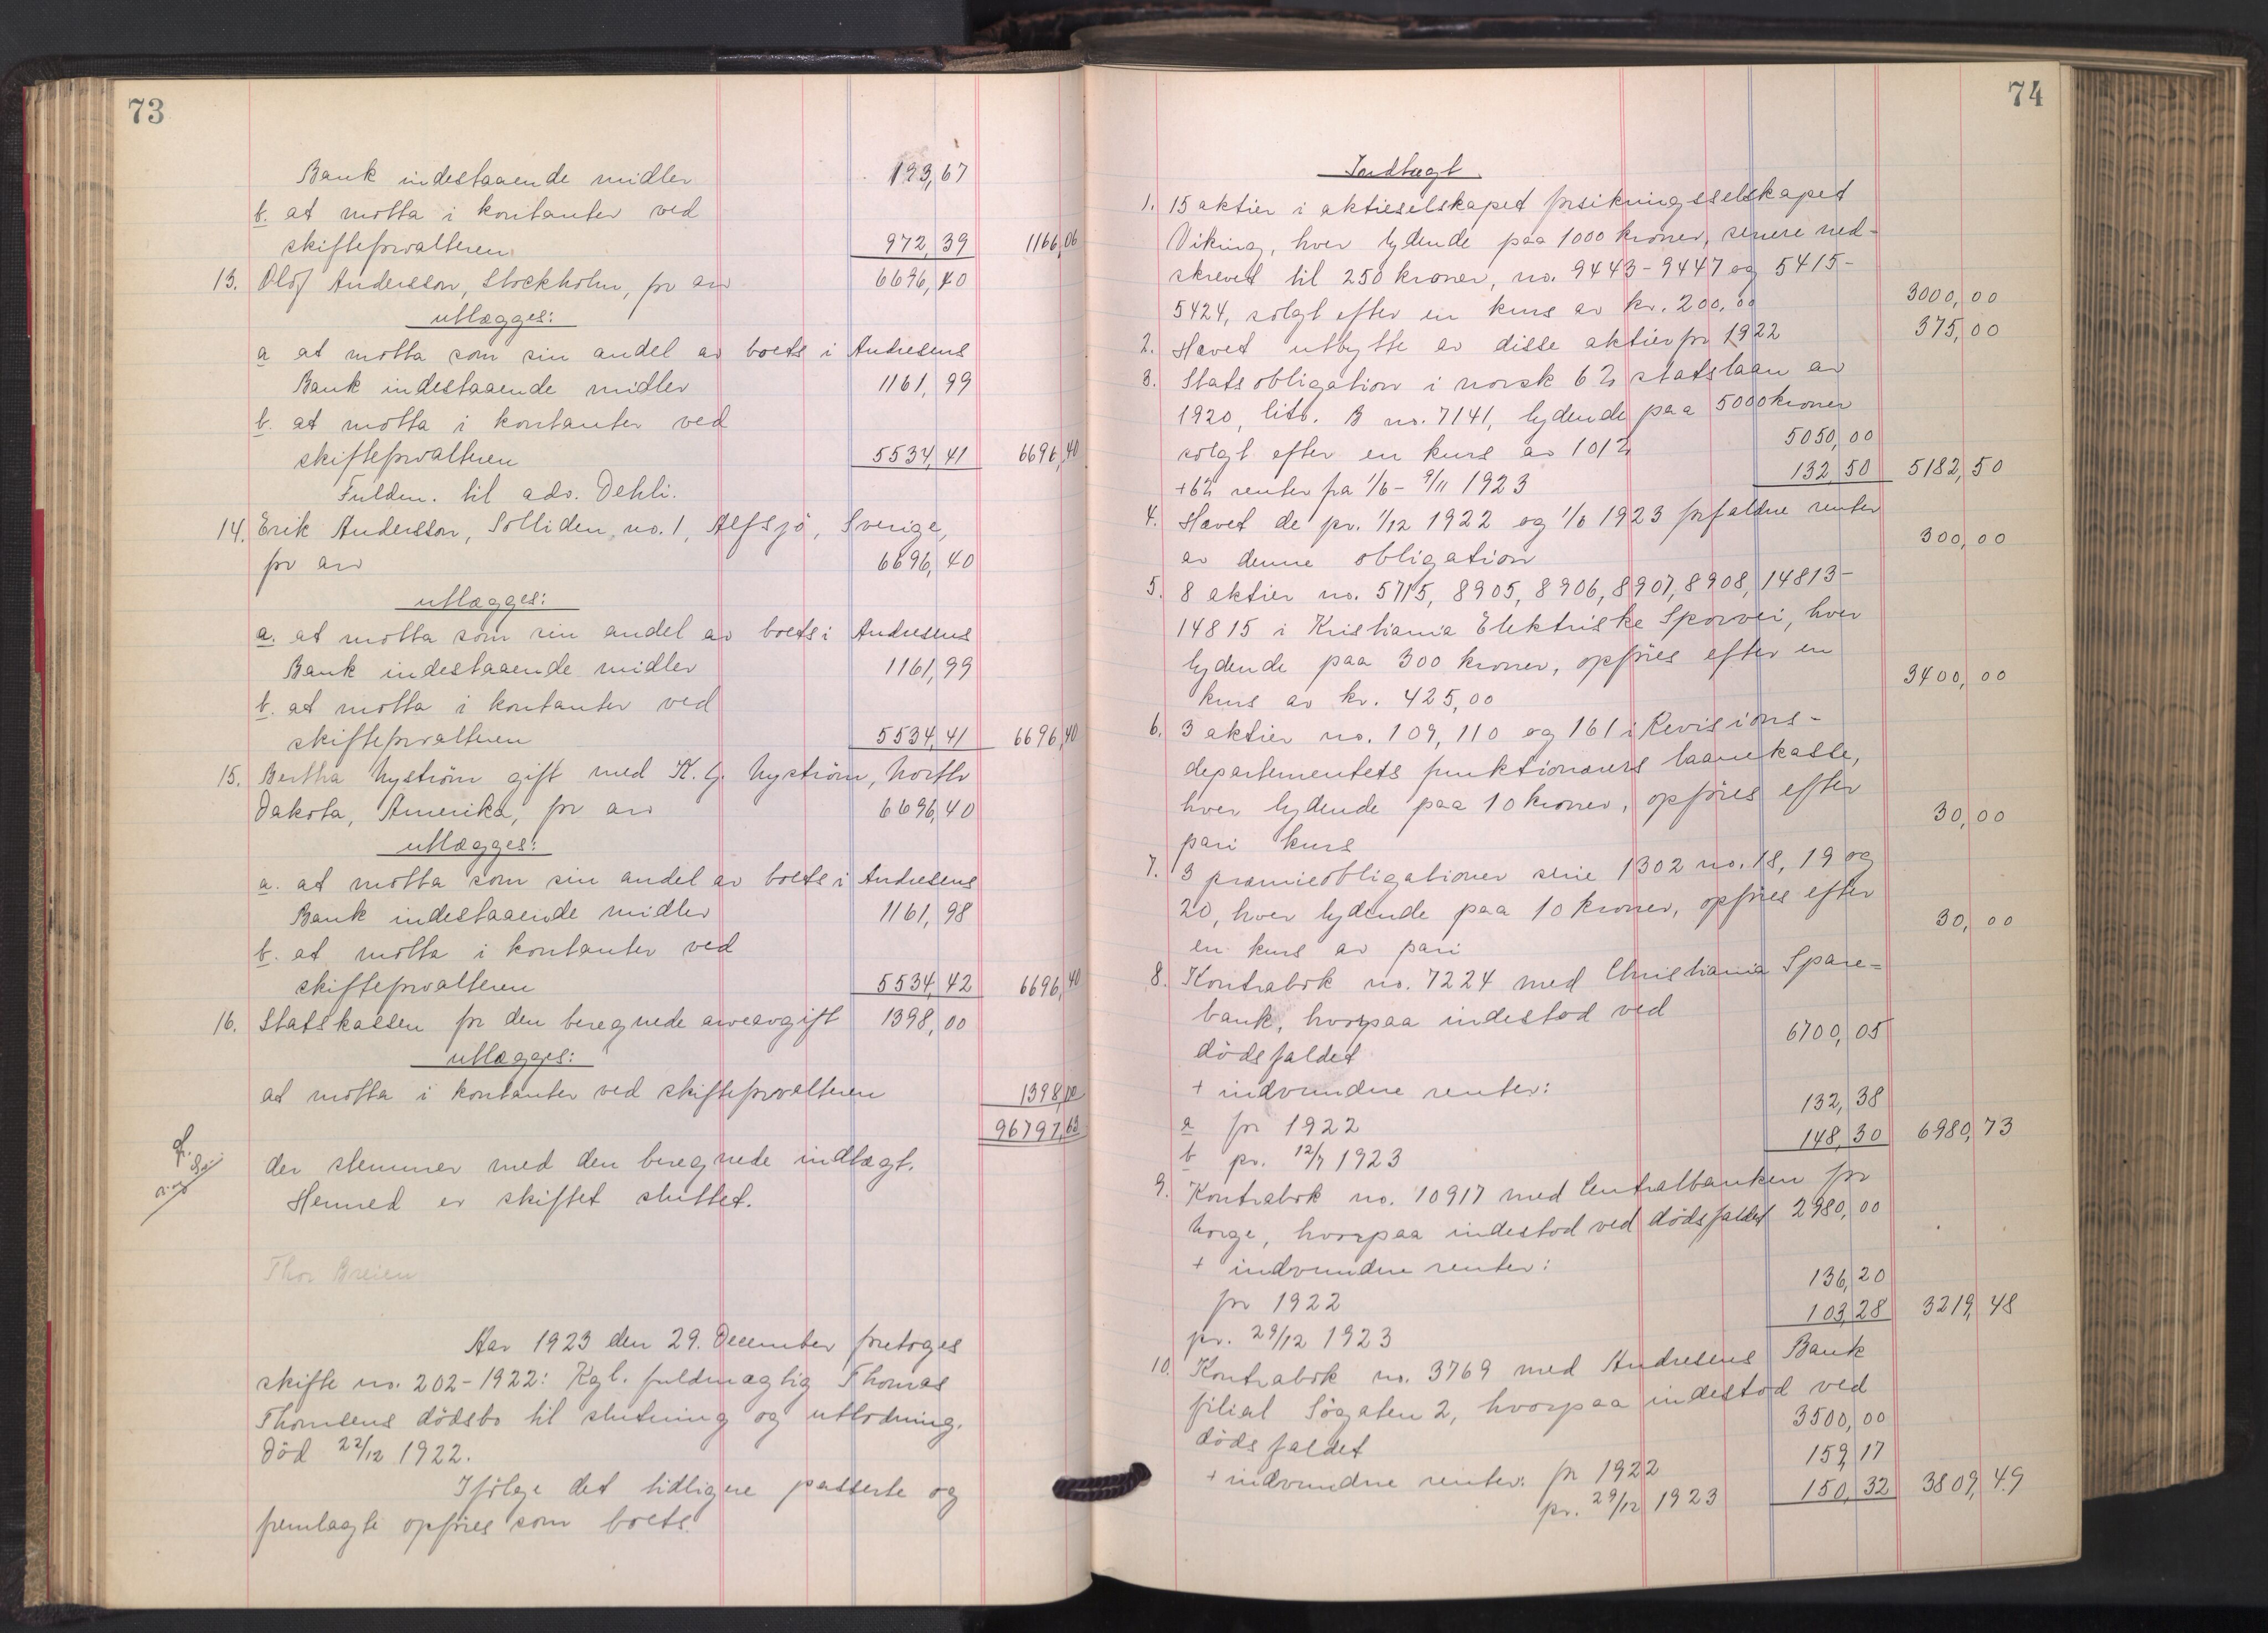 73
Bank indestaaende midler 193,67
b. at motta i kontanter ved
skifteforvalteren 972,39 1166,06
13. Olof Andersson, Stockholm, for arv 6696,40
utlægges:
a at motta som sin andel av boets i Andresens
Bank indestaaende midler 1161,99
b. at motta i kontanter ved
skifteforvalteren 5534,41 6696,40
Fuldm. til adv. Dehli.
14. Erik Andersson, Solliden, no. 1, Alfsjö, Sverige,
for arv 6696,40
utlægges:
a. at motta som sin andel av boets i Andresens
Bank indestaaende midler 1161,99
b. at motta i kontanter ved
skifteforvalteren 5534,41 6696,40
15. Bertha Nyström gift med K. G. Nyström, North
Dakota, Amerika, for arv 6696,40
utlægges:
a. at motta som sin andel av boets i Andresens
Bank indestaaende midler 1161,98
b. at motta i kontanter ved
skifteforvalteren 5534,42 6696,40
16. Statskassen for den beregnede arveavgift 1398,00
utlægges:
at motta i kontanter ved skifteforvalteren 1398,00
96797,63
der stemmer med den beregnede indtægt.
Hermed er skiftet sluttet.
Thor Breien
Aar 1923 den 29. December foretoges
skifte no. 202-1922: Kgl. fuldmægtig Thomas
Thomsens dödsbo til slutning og utlodning.
Död 22/12 1922.
Ifölge det tidligere passerte og
fremlagte opföres som boets
74
Indtægt.
1. 15 aktier i aktieselskapet forsikringsselskapet
Viking, hver lydende paa 1000 kroner, senere ned-
skrevet til 250 kroner, no. 9443-9447 og 5415-
5424, solgt efter en kurs av kr. 200,00 3000,00
2. Hævet utbytte av disse aktier for 1922 375,00
3. Statsobligation i norsk 6% statslaan av
1920, litr. B no. 7141, lydende paa 5000 kroner
solgt efter en kurs av 101% 5050,00
+6% renter fra 1/6 - 9/11 1923 132,50 5182,50
4. Hævet de pr. 1/12 1922 og 1/6 1923 forfaldne renter
av denne obligation 300,00
5. 8 aktier no. 5715, 8905, 8906, 8907, 8908, 14813-
14815 i Kristiania Elektriske Sporvei, hver
lydende paa 300 kroner, opföres efter en
kurs av kr. 425,00 3400,00
6. 3 aktier no. 109, 110 og 161 i Revisions-
departementets funktionærers laanekasse,
hver lydende paa 10 kroner, opföres efter
pari kurs 30,00
7. 3 præmieobligationer serie 1302 no. 18, 19 og
20, hver lydende paa 10 kroner, opföres efter
en kurs av pari 30,00
8. Kontrabok no. 7224 med Christiania Spare=
bank, hvorpaa indestod ved
dödsfaldet 6700,05
+ indvundne renter:
a for 1922 132,38
b pr. 12/7 1923 148,30 6980,73
9. Kontrabok no. 10917 med Centralbanken for
Norge, hvorpaa indestod ved dödsfaldet 2980,00
+ indvundne renter:
for 1922 136,20
pr. 29/12 1923 103,28 3219,48
10. Kontrabok no. 3769 med Andresens Bank
filial Sögaten 2, hvorpaa indestod ved
dödsfaldet 3500,00
+ indvundne renter: for 1922 159,17
pr. 29/12 1923 150,32 3809,49